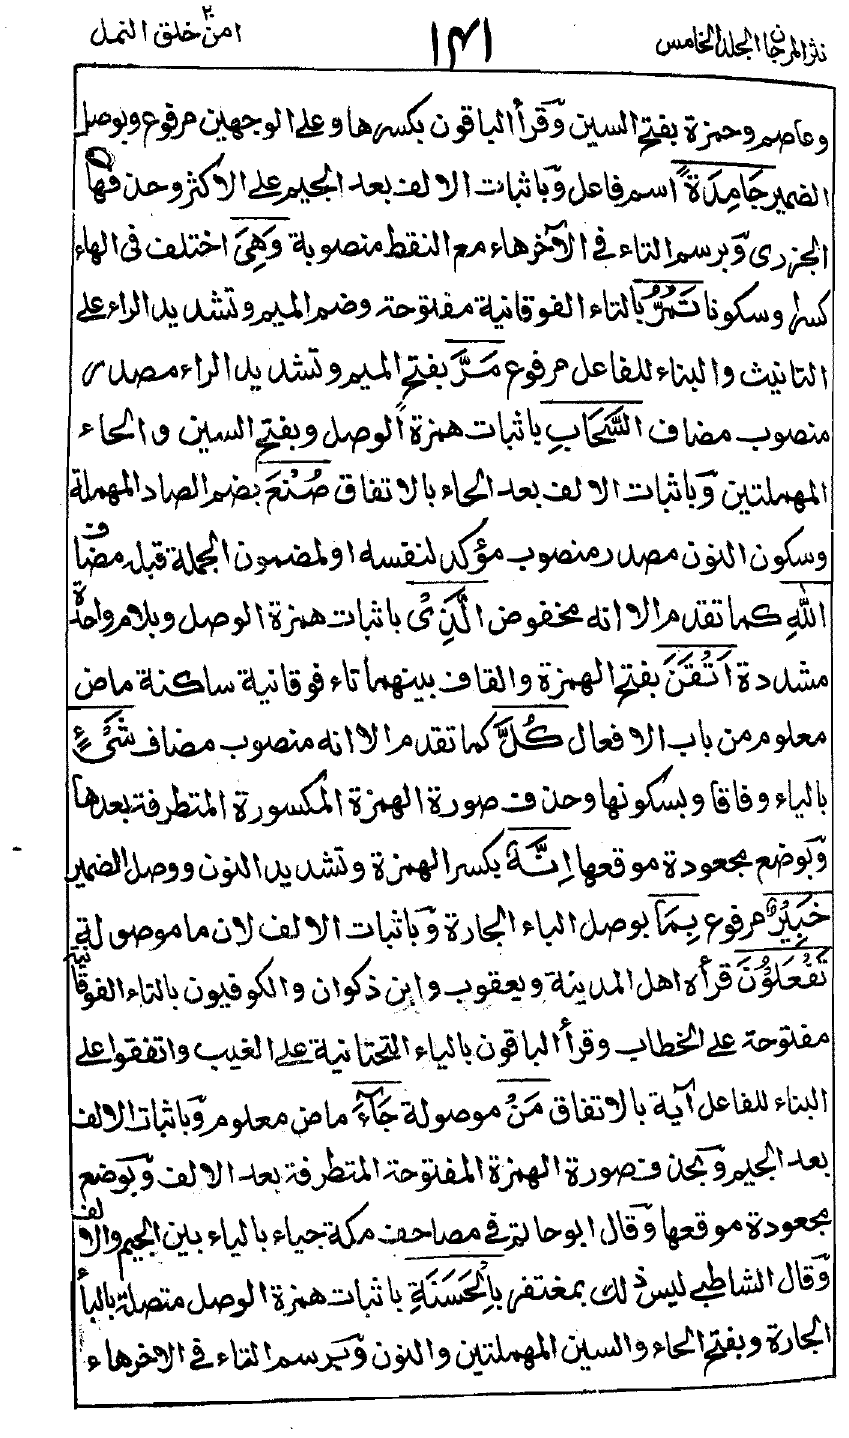 نثر المرجان الجلد الخامس ١٤١ امن٢٠ خلق النمل
وعاصم وحمزة بفتح السين وّقرأ الباقون بكسرها وعلى الوجهين مرفوع وبوصل
الضمير جَامِدَةً اسم فاعل وّباثبات الالف بعد الجيم على الاكثر وحذفها
الجزرى وّبرسم التاء فى الآخر هاء مع النقط منصوبة وَهِىَ اختلف فى الهاء
كسرا وسكونا تَمُرُّ بالتاء الفوقانية مفتوحة وضم الميم وتشديد الراء على
التانيث والبناء للفاعل مرفوع مَرَّ بفتح الميم وتشديد الراء مصدر
منصوب مضاف السَّحَابِ باثبات همزة الوصل وبفتح السين والحاء
المهملتين وّباثبات الالف بعد الحاء بالاتفاق صُنْعَ بضم الصاد المهملة
وسكون النون مصدر منصوب مؤكد لنفسه او لمضمون الجملة قبله مضاف
اللهِ كما تقدم الا انه مخفوض الَّذِىْ باثبات همزة الوصل وبلام واحدة
مشددة اَتْقَنَ بفتح الهمزة والقاف بينهما تاء فوقانية ساكنة ماض
معلوم من باب الافعال كُلَّ كما تقدم الا انه منصوب مضاف شَىْءٍ
بالياء وفاقا وبسكونها وحذف صورة الهمزة المكسورة المتطرفة بعدها
وّبوضع مجعودة موقعها اِنَّهٗ بكسر الهمزة وتشديد النون ووصل الضمير
خَبِيْرٌ مرفوع بِمَا بوصل الباء الجارة وّباثبات الالف لان ما موصولة
تَفْعَلُوْنَ قرأه اهل المدينة ويعقوب وابن ذكوان والكوفيون بالتاء الفوقانية
مفتوحة على الخطاب وقرأ الباقون بالياء التحتانية على الغيب واتفقوا على
البناء للفاعل آية بالاتفاق مَنْ موصولة جَآءَ ماض معلوم وّباثبات الالف
بعد الجيم وّبحذف صورة الهمزة المفتوحة المتطرفة بعد الالف وّبوضع
مجعودة موقعها وّقال ابو حاتم فى مصاحف مكة جياء بالياء بين الجيم والالف
وّقال الشاطبى ليس ذلك بمغتفر بِالْحَسَنَةِ باثبات همزة الوصل متصلة بالباء
الجارة وبفتح الحاء والسين المهملتين والنون وّبرسم التاء فى الاخر هاء